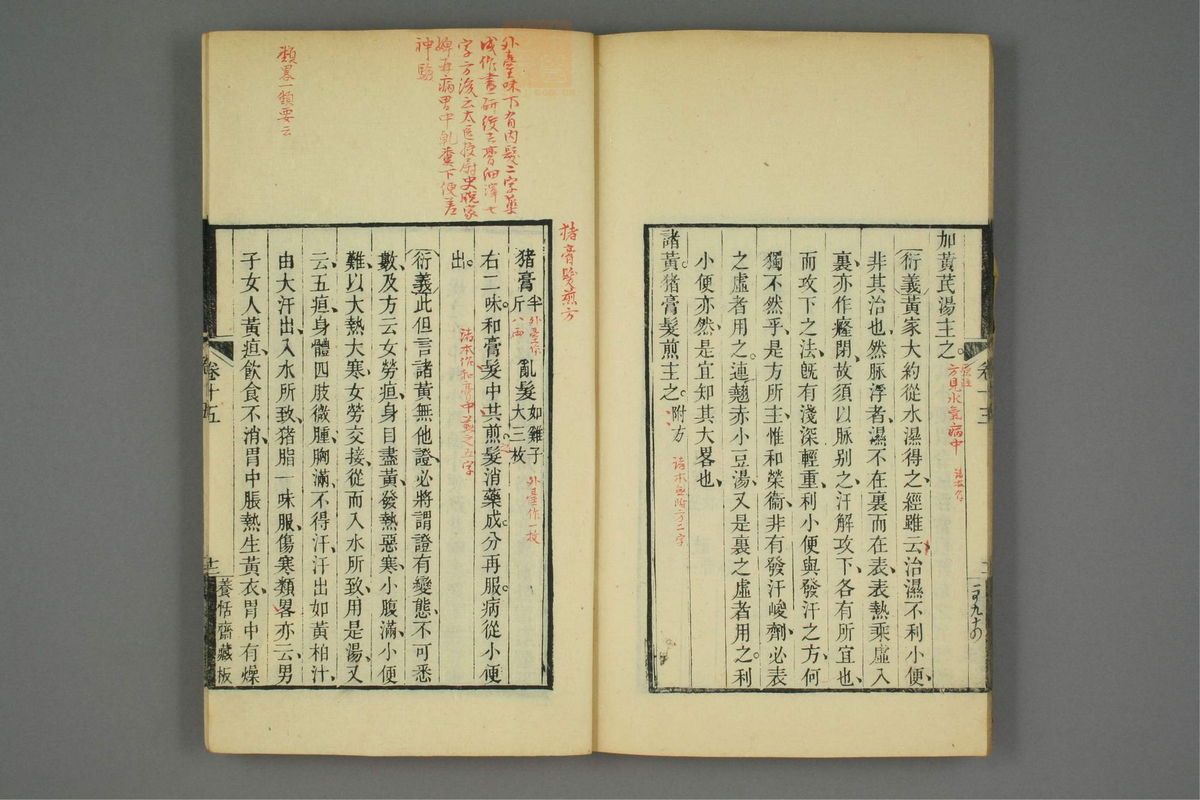 加黃芪湯主之。
方見水氣病中
衍義黃家大約從水濕得之、經雖云治濕不利小便、
非其治也、然脉浮者、濕不在裏而在表、表熱乘虛入
裏、亦作癃閉、故須以脉别之、汗解攻下、各有所宜也、
而攻下之法、旣有淺深輕重、利小便與發汗之方、何
獨不然乎、是方所主、惟和榮衞、非有發汗峻劑、必表
之虛者用之。連翹赤小豆湯、又是裏之虛者用之。利
小便亦然、是宜知其大畧也、
諸黃、猪膏髮煎主之。附方
諸本無附方二字
猪膏髮煎方
猪膏半斤亂髮如雞子大三枚
外臺作八兩
外臺作一枚
右二味。和膏髮中共煎。髮消藥成。分再服。病從小便
出。
衍義此但言諸黃、無他證、必將謂證有變態、不可悉
數、及方云女勞疸、身目盡黃、發熱惡寒、小腹滿、小便
難、以大熱大寒、女勞交接、從而入水所致、用是湯、又
云、五疸、身體四肢微腫、胸滿、不得汗、汗出如黃柏汁、
由大汗出、入水所致、猪脂一味服、傷寒類畧亦云、男
子女人黃疸、飲食不消、胃中脹熱生黃衣、胃中有燥
卷十五
養恬齋藏板
類畧一類要云